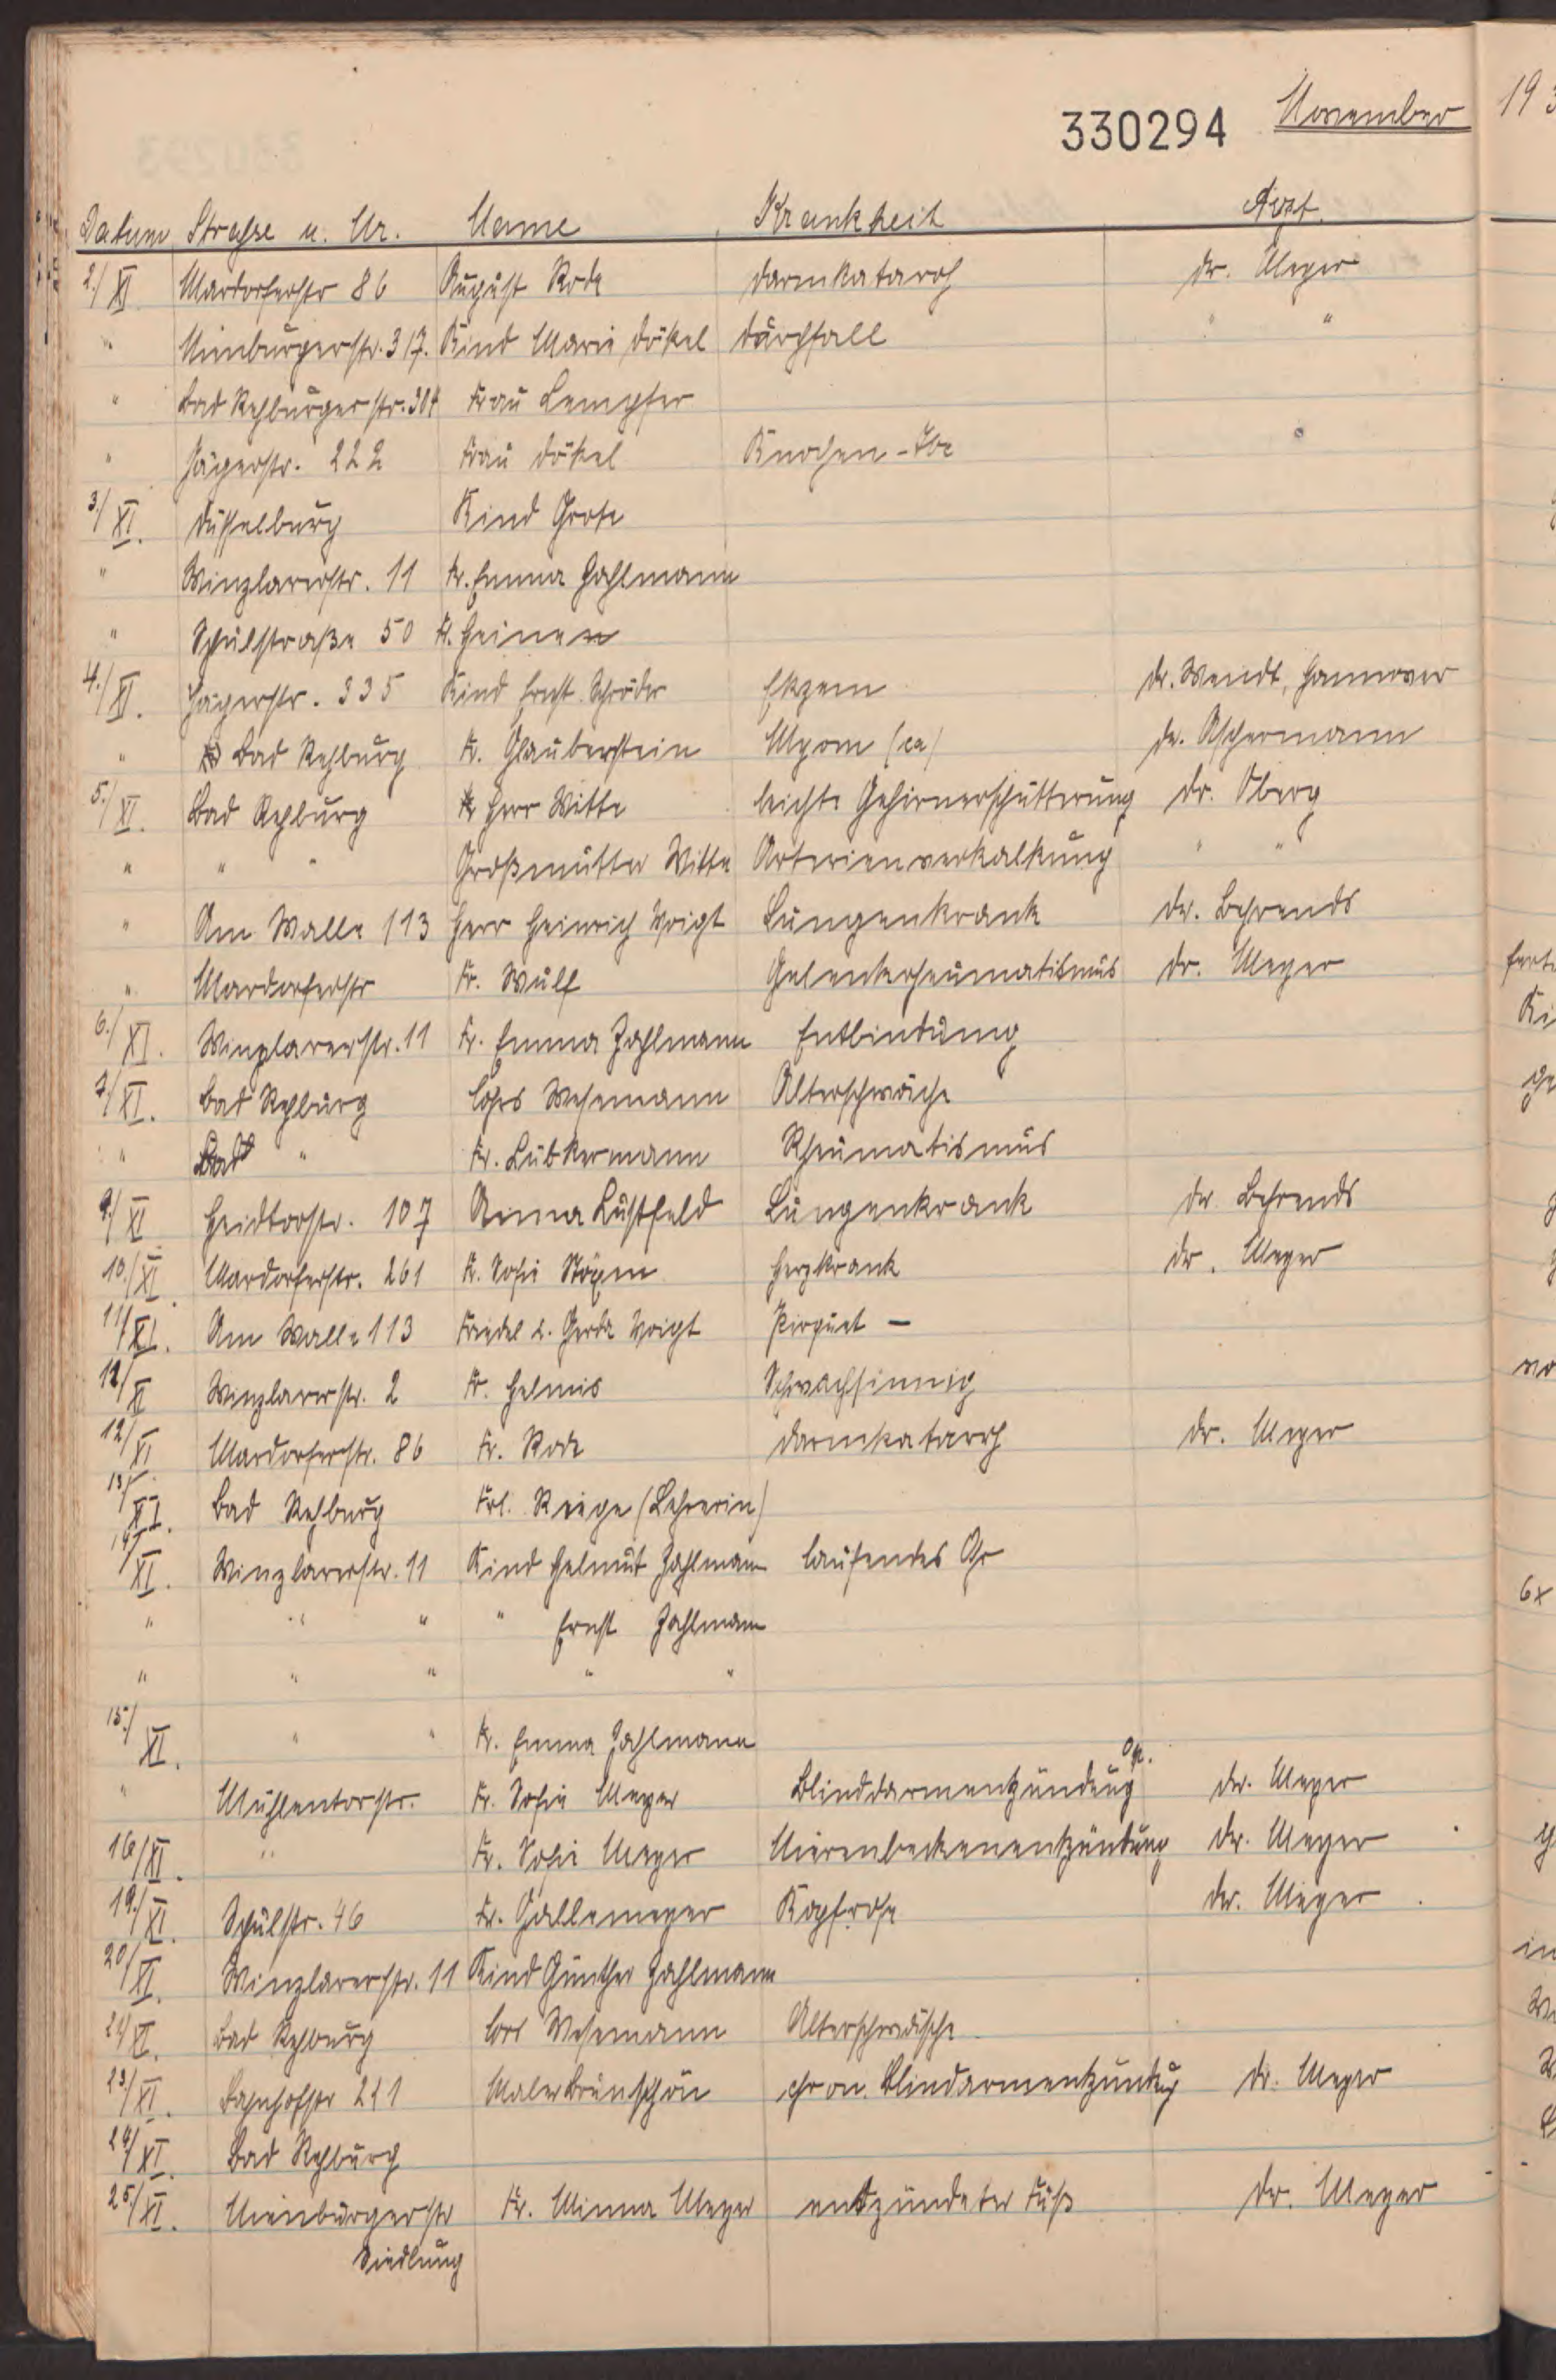 330294 November 193
Datum Strasse u. Nr. Name Krankheit Arzt
2./XI Mardorferstr 86 August Rode Darmkatarrh Dr. Meyer
" Nienburgerstr. 317. Kind Marie Dökel Durchfall " "
" Bad Rehburgerstr. 304 Frau Lempfer
" Jägerstr. 222 Frau Dökel Knochen-Tbc
3./XI. Düsselburg Kind Grote
" Winzlarerstr. 11 Fr. Emma Zahlmann
" Schulstraße 50 Fr. Heinen
4./XI. Jägerstr. 335 Kind Ernst Schröder Ekzem Dr. Wendt, Hannover
" Bad Rehburg Fr. Glauberstein Myom (ca) Dr. Aschermann
5./XI. Bad Rehburg Herr Witte leichte Gehirnerschütterung Dr. Oberg
" " " Großmutter Witte Arterienverkalkung " "
" Am Walle 113 Herr Heinrich Voigt Lungenkrank Dr. Behrends
" Mardorferstr Fr. Wulf Gelenkrheumatismus Dr. Meyer
6./XI. Winzlarerstr. 11 Fr. Emma Zahlmann Entbindung
7/XI. Bad Rehburg Cohrs Wesemann Alterschwäche
" Bad " Fr. Lübkermann Rheumatismus
9/XI Heidtorstr. 107 Anna Lustfeld Lungenkrank Dr. Behrends
10./XI. Mardorferstr. 261 Fr. Sofie Herzkrank Dr. Meyer
11/XI. Am Walle 113 Friedel u. Gerda Voigt Pirquet –
12/XI Winzlarerstr. 2 Fr. Helmis Schwachsinnig
12/XI Mardorferstr. 86 Fr. Rode Darmkatarrh Dr. Meyer
13/XI. Bad Rehburg Frl. Riege (Lehrerin)
14/XI. Winzlarerstr. 11 Kind Helmut Zahlmann laufendes Ohr
" " " " Ernst Zahlmann
" " " " "
15./XI. " " Fr. Emma Zahlmann
" Mühlentorstr. Fr. Sofie Meyer Blinddarmentzündung Op. Dr. Meyer
16/XI. " Fr. Sofie Meyer Nierenbeckenentzündung Dr. Meyer
19./XI. Schulstr. 46 Fr. Gallemeyer Kopfrose Dr. Meyer
20/XI. Winzlarerstr. 11 Kind Günther Zahlmann
21/XI. Bad Rehburg Cors Wesemann Alterschwäche
23/XI. Bahnhofstr 211 Maler Brunschön chron. Blindarmentzündug Dr. Meyer
24/XI. Bad Rehburg
25/XI. Nienburgerstr Fr. Minna Meyer entzündeter Fuß Dr. Meyer
Siedlung